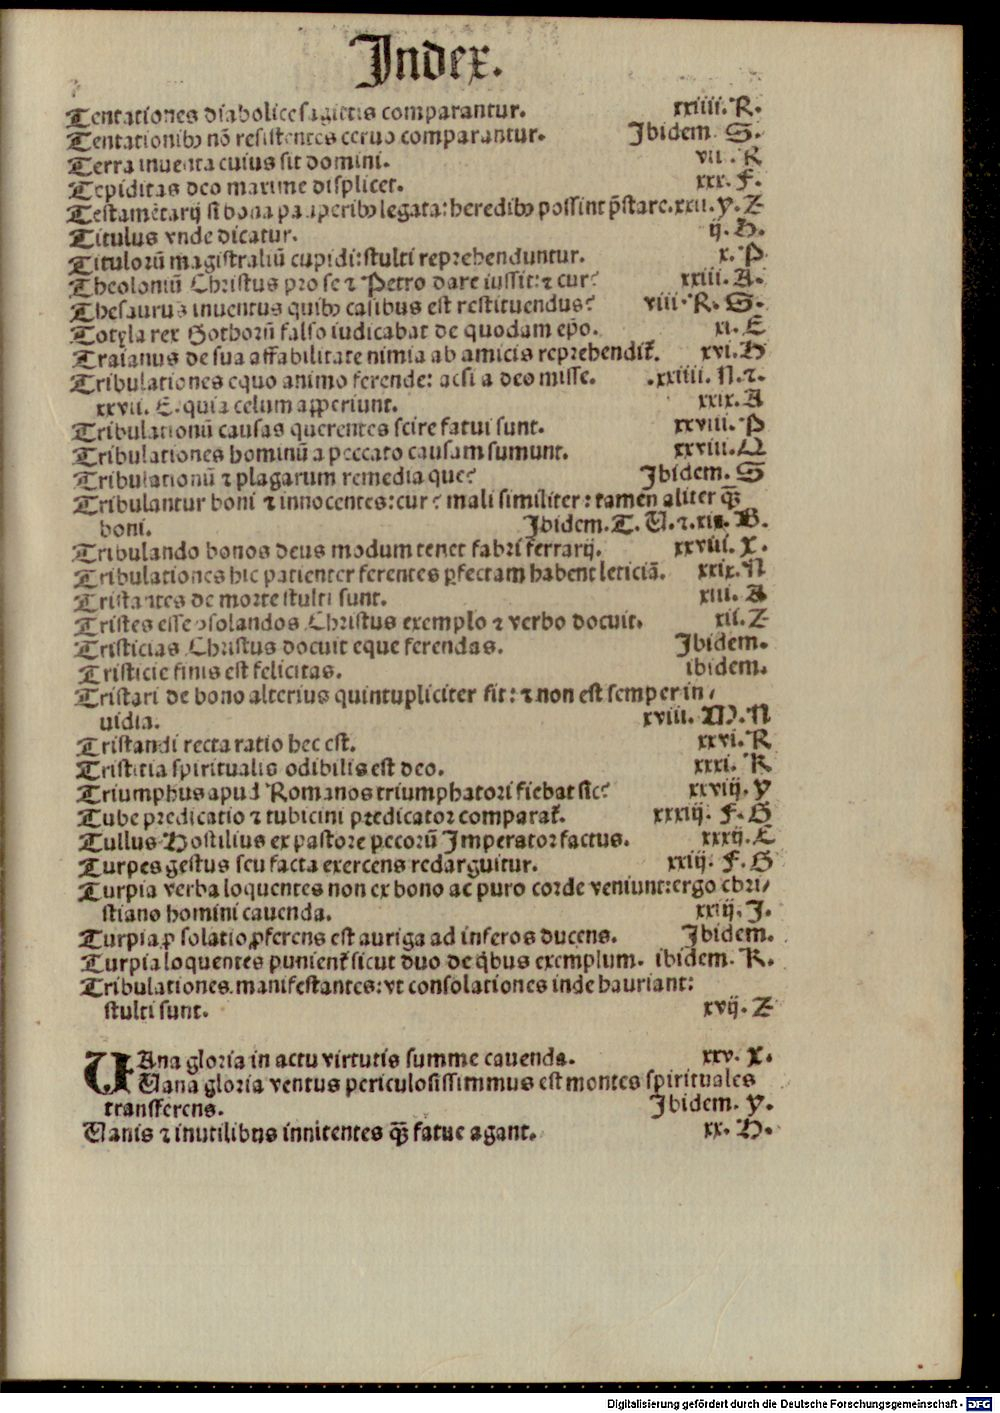 Index.
Tentationes diabolice sagittis comparantur. xxiiii. R.
Tentationibꝰ nō resistentes ceruo comparantur. Ibidem. S.
Terra inuenta cuius sit domini. vii. R
Tepiditas deo maxime displicet. xxx. F.
Testamētarij si bona pauperibꝰ legata: heredibꝰ possint p̄stare. xxii. y. Z
Titulus vnde dicatur. ij. H.
Titulorū magistraliū cupidi: stulti reprehenduntur. x. P
Theoloniū Christus pro se ⁊ Petro dare iussit: ⁊ cur? xxiii. A.
Thesaurus inuentus quibꝰ casibus est restituendus? viii. R. S.
Totyla rex Gothorū falso iudicabat de quodam epo. xi. E
Traianus de sua affabilitate nimia ab amicis reprehendit᷑. xvi. H
Tribulationes equo animo ferende: acsi a deo misse. .xxiiii. N. ⁊.
xxvii. E. quia celum apperiunt. xxix. A
Tribulationū causas querentes scire fatui sunt. xxviii. P
Tribulationes hominū a peccato causam sumunt. xxviii. Q
Tribulationū ⁊ plagarum remedia que? Ibidem. S
Tribulantur boni ⁊ innocentes: cur? mali similiter: tamen aliter q̄ȝ
boni. Ibidem. T. U. ⁊. xix. B.
Tribulando bonos deus modum tenet fabri ferrarij. xxviii. X.
Tribulationes hic patienter ferentes ꝑfectam habent leticiā. xxix. N
Tristantes de morte stulti sunt. xiii. A
Tristes esse ↄsolandos Christus exemplo ⁊ verbo docuit. xii. Z
Tristicias Christus docuit eque ferendas. Ibidem.
Tristicie finis est felicitas. ibidem.
Tristari de bono alterius quintupliciter fit: ⁊ non est semper in/
uidia. xviii. M. N
Tristandi recta ratio hec est. xxvi. R
Tristitia spiritualis odibilis est deo. xxxi. K
Triumphus apud Romanos triumphatori fiebat sic? xxviij. y
Tube predicatio ⁊ tubicini predicator comparat᷑. xxxiij. F. G
Tullus Hostilius ex pastore pecorū Imperator factus. xxxij. E
Turpes gestus seu facta exercens redarguitur. xxiij. F. G
Turpia verba loquentes non ex bono ac puro corde veniunt: ergo chri/
stiano homini cauenda. xxiij. J.
Turpia ꝓ solatio ꝓferens est auriga ad inferos ducens. Ibidem.
Turpia loquentes punient᷑ sicut duo de q̇bus exemplum. ibidem. K.
Tribulationes manifestantes: vt consolationes inde hauriant:
stulti sunt. xvij. Z
UAna gloria in actu virtutis summe cauenda. xxv. X.
Uana gloria ventus periculosissimmus est montes spirituales
transferens. Ibidem. y.
Uanis ⁊ inutilibus innitentes q̄ȝ fatue agant. xx. H.
Digitalisierung gefördert durch die Deutsche Forschungsgemeinschaft - DFG